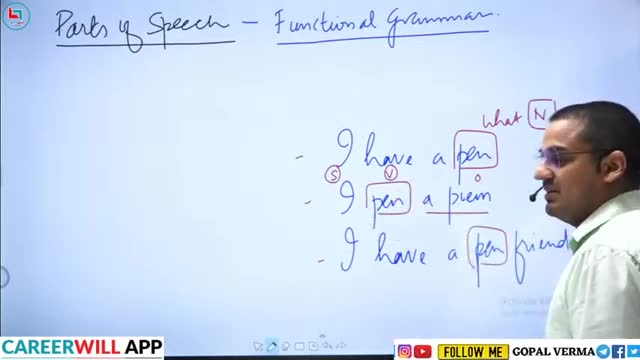 Parts of Speech - Functional Grammar.
what N
- I have a pen
S V O
- I pen a poem
- I have a pen friend
CAREERWILL APP
FOLLOW ME
GOPAL VERMA